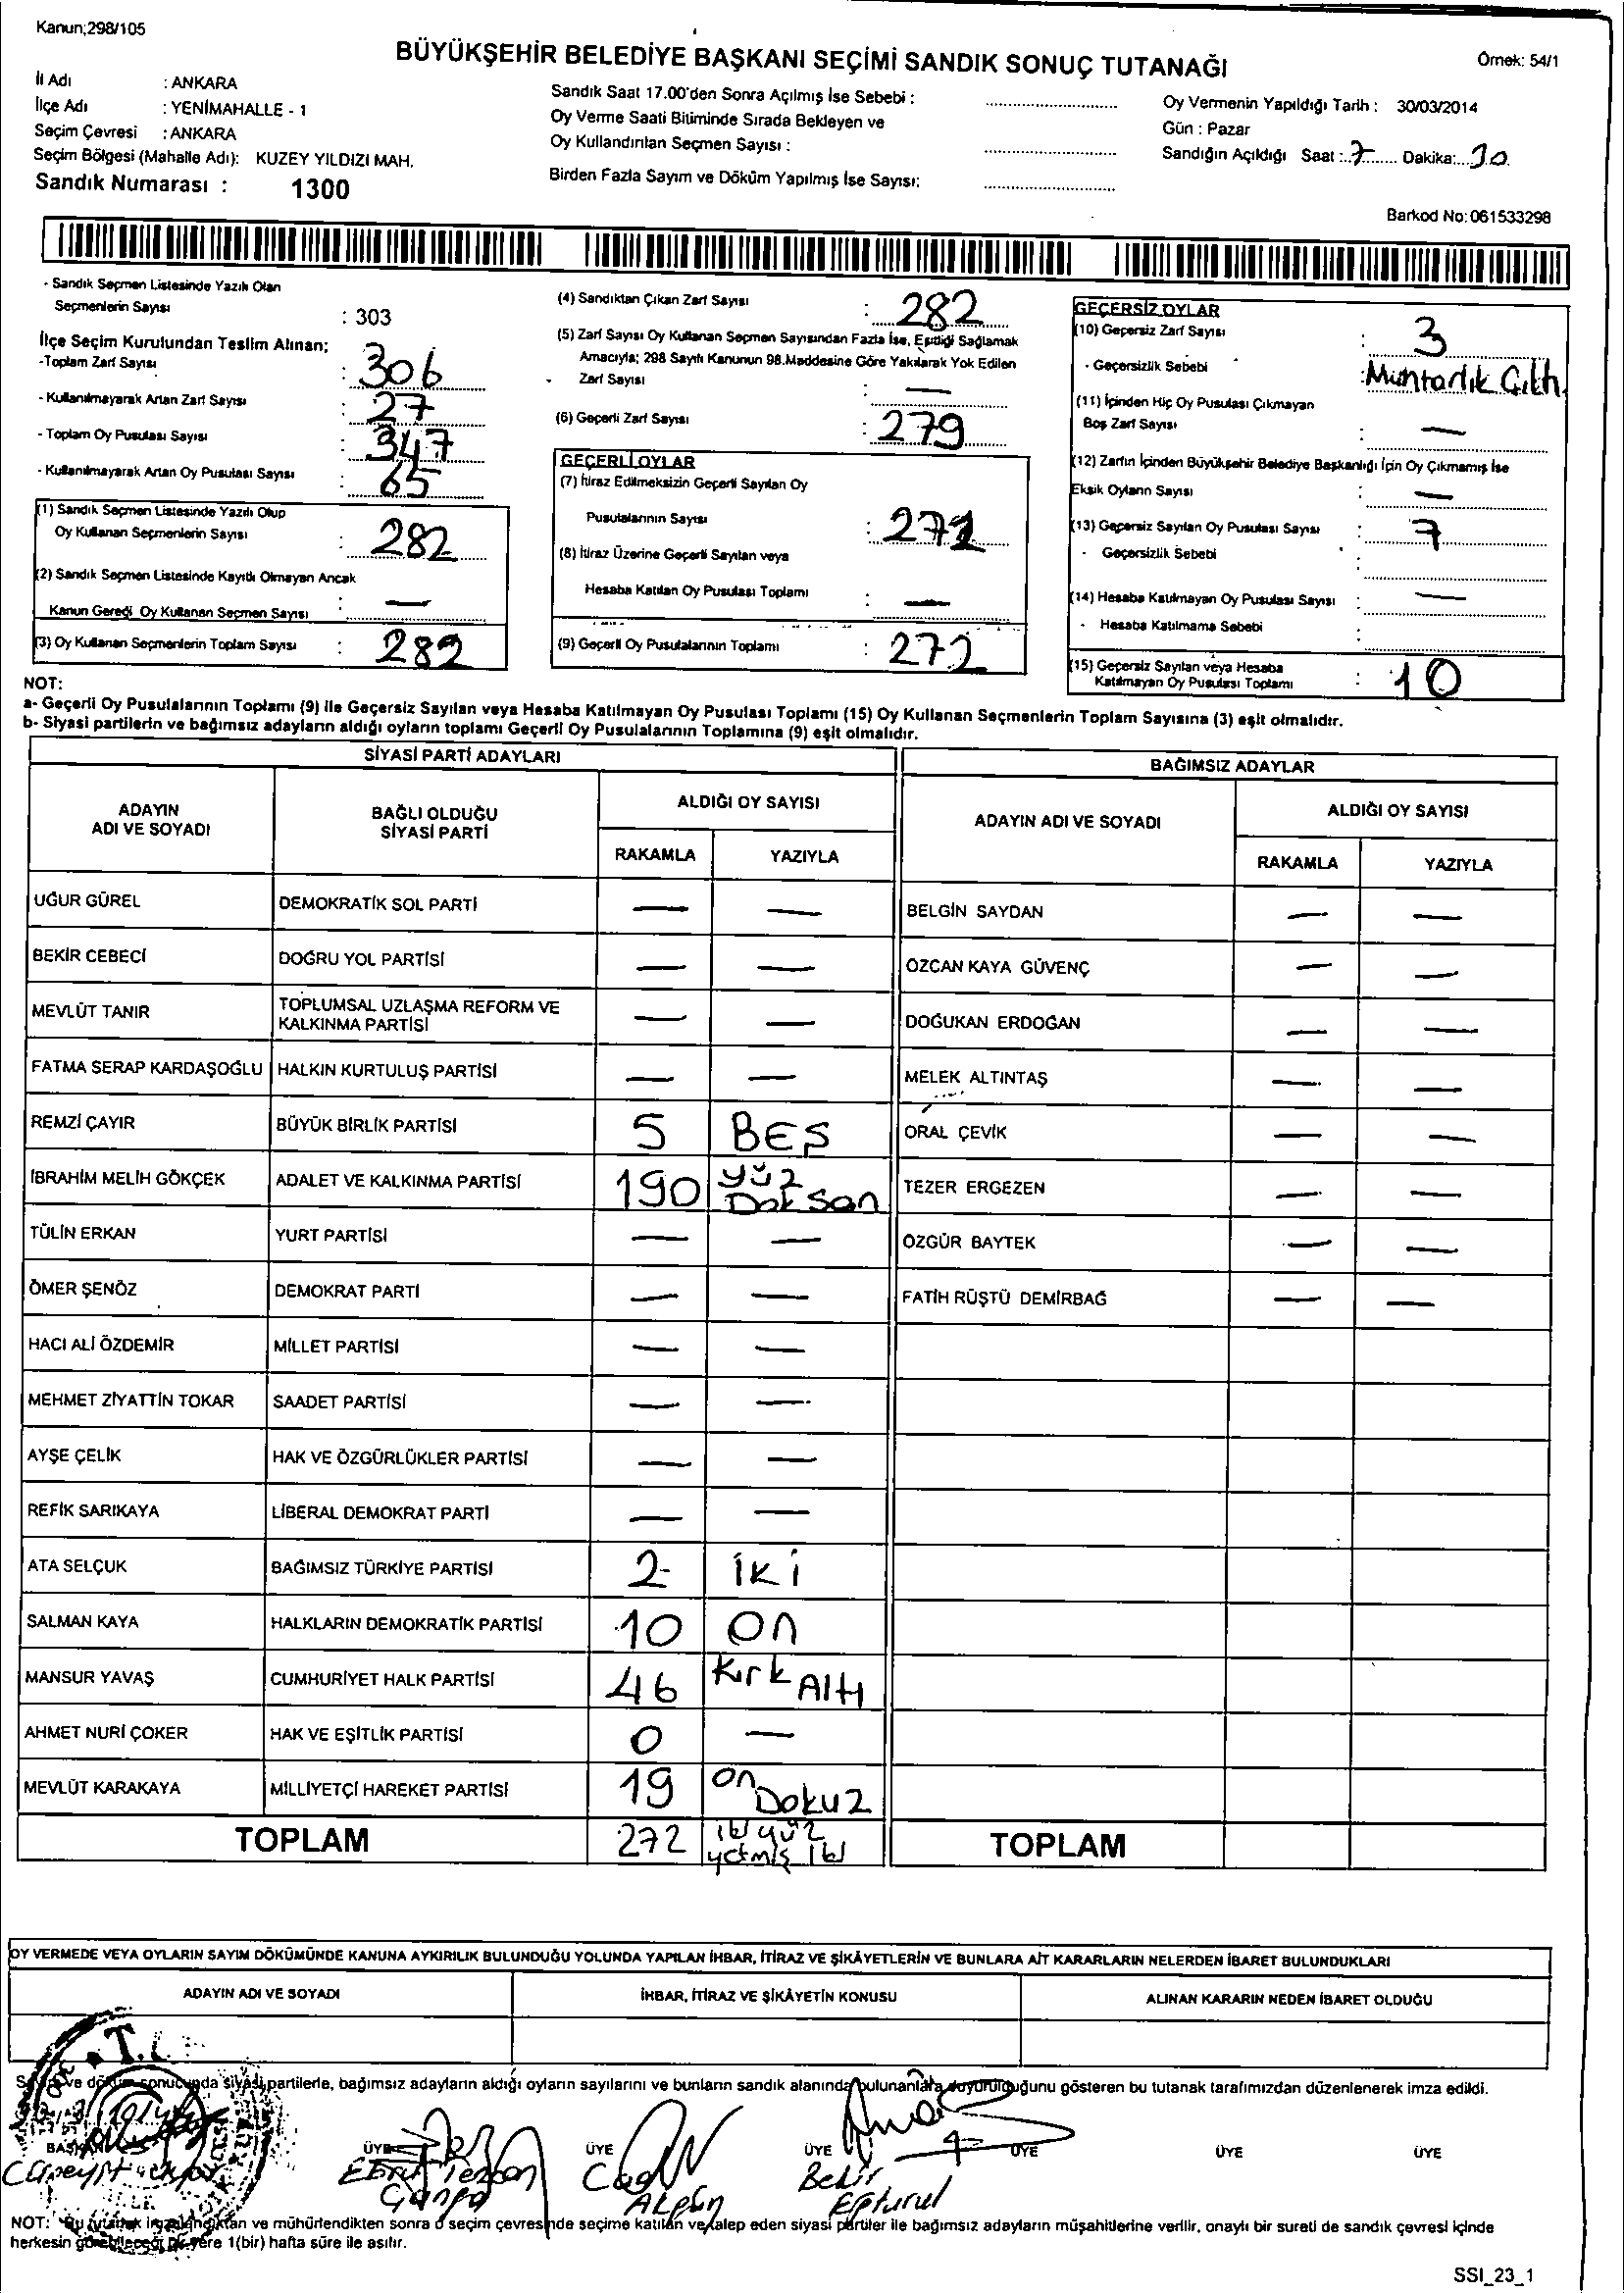 Kanun;298/105
BÜYÜKŞEHİR BELEDİYE BAŞKANI SEÇİMİ SANDIK SONUÇ TUTANAĞI
Örnek: 54/1
İl Adı : ANKARA
İlçe Adı : YENİMAHALLE - 1
Seçim Çevresi : ANKARA
Seçim Bölgesi (Mahalle Adı): KUZEY YILDIZI MAH.
Sandık Numarası : 1300
Sandık Saat 17.00'den Sonra Açılmış İse Sebebi :
Oy Verme Saati Bitiminde Sırada Bekleyen ve
Oy Kullandırılan Seçmen Sayısı :
Birden Fazla Sayım ve Döküm Yapılmış İse Sayısı:
Oy Vermenin Yapıldığı Tarih : 30/03/2014
Gün : Pazar
Sandığın Açıldığı Saat :..7........ Dakika:...30
Barkod No:061533298
- Sandık Seçmen Listesinde Yazılı Olan
Seçmenlerin Sayısı : 303
İlçe Seçim Kurulundan Teslim Alınan;
-Toplam Zarf Sayısı : 306
- Kullanılmayarak Artan Zarf Sayısı : 27
- Toplam Oy Pusulası Sayısı : 347
- Kullanılmayarak Artan Oy Pusulası Sayısı : 65
(1) Sandık Seçmen Listesinde Yazılı Olup
Oy Kullanan Seçmenlerin Sayısı : 282
(2) Sandık Seçmen Listesinde Kayıtlı Olmayan Ancak
Kanun Gereği Oy Kullanan Seçmen Sayısı : —
(3) Oy Kullanan Seçmenlerin Toplam Sayısı : 282
(4) Sandıktan Çıkan Zarf Sayısı : 282
(5) Zarf Sayısı Oy Kullanan Seçmen Sayısından Fazla İse, Eşitliği Sağlamak
Amacıyla; 298 Sayılı Kanunun 98.Maddesine Göre Yakılarak Yok Edilen
Zarf Sayısı : —
(6) Geçerli Zarf Sayısı : 279
GEÇERLİ OYLAR
(7) İtiraz Edilmeksizin Geçerli Sayılan Oy
Pusulalarının Sayısı : 272
(8) İtiraz Üzerine Geçerli Sayılan veya
Hesaba Katılan Oy Pusulası Toplamı : —
(9) Geçerli Oy Pusulalarının Toplamı : 272
GEÇERSİZ OYLAR
(10) Geçersiz Zarf Sayısı : 3
- Geçersizlik Sebebi : Muhtarlık Çıktı
(11) İçinden Hiç Oy Pusulası Çıkmayan
Boş Zarf Sayısı : —
(12) Zarfın İçinden Büyükşehir Belediye Başkanlığı İçin Oy Çıkmamış İse
Eksik Oyların Sayısı : —
(13) Geçersiz Sayılan Oy Pusulası Sayısı : 7
- Geçersizlik Sebebi :
(14) Hesaba Katılmayan Oy Pusulası Sayısı : —
- Hesaba Katılmama Sebebi :
(15) Geçersiz Sayılan veya Hesaba
Katılmayan Oy Pusulası Toplamı : 10
NOT:
a- Geçerli Oy Pusulalarının Toplamı (9) ile Geçersiz Sayılan veya Hesaba Katılmayan Oy Pusulası Toplamı (15) Oy Kullanan Seçmenlerin Toplam Sayısına (3) eşit olmalıdır.
b- Siyasi partilerin ve bağımsız adayların aldığı oyların toplamı Geçerli Oy Pusulalarının Toplamına (9) eşit olmalıdır.
SİYASİ PARTİ ADAYLARI
ADAYIN ADI VE SOYADI
BAĞLI OLDUĞU SİYASİ PARTİ
ALDIĞI OY SAYISI
RAKAMLA YAZIYLA
UĞUR GÜREL DEMOKRATİK SOL PARTİ — —
BEKİR CEBECİ DOĞRU YOL PARTİSİ — —
MEVLÜT TANIR TOPLUMSAL UZLAŞMA REFORM VE KALKINMA PARTİSİ — —
FATMA SERAP KARDAŞOĞLU HALKIN KURTULUŞ PARTİSİ — —
REMZİ ÇAYIR BÜYÜK BİRLİK PARTİSİ 5 BEŞ
İBRAHİM MELİH GÖKÇEK ADALET VE KALKINMA PARTİSİ 190 yüz Doksan
TÜLİN ERKAN YURT PARTİSİ — —
ÖMER ŞENÖZ DEMOKRAT PARTİ — —
HACI ALİ ÖZDEMİR MİLLET PARTİSİ — —
MEHMET ZİYATTİN TOKAR SAADET PARTİSİ — —
AYŞE ÇELİK HAK VE ÖZGÜRLÜKLER PARTİSİ — —
REFİK SARIKAYA LİBERAL DEMOKRAT PARTİ — —
ATA SELÇUK BAĞIMSIZ TÜRKİYE PARTİSİ 2 iki
SALMAN KAYA HALKLARIN DEMOKRATİK PARTİSİ 10 on
MANSUR YAVAŞ CUMHURİYET HALK PARTİSİ 46 Kırk Altı
AHMET NURİ ÇOKER HAK VE EŞİTLİK PARTİSİ 0 —
MEVLÜT KARAKAYA MİLLİYETÇİ HAREKET PARTİSİ 19 on Dokuz
TOPLAM 272 iki yüz yetmiş iki
BAĞIMSIZ ADAYLAR
ADAYIN ADI VE SOYADI
ALDIĞI OY SAYISI
RAKAMLA YAZIYLA
BELGİN SAYDAN — —
ÖZCAN KAYA GÜVENÇ — —
DOĞUKAN ERDOĞAN — —
MELEK ALTINTAŞ — —
ORAL ÇEVİK — —
TEZER ERGEZEN — —
ÖZGÜR BAYTEK — —
FATİH RÜŞTÜ DEMİRBAĞ — —
TOPLAM
OY VERMEDE VEYA OYLARIN SAYIM DÖKÜMÜNDE KANUNA AYKIRILIK BULUNDUĞU YOLUNDA YAPILAN İHBAR, İTİRAZ VE ŞİKÂYETLERİN VE BUNLARA AİT KARARLARIN NELERDEN İBARET BULUNDUKLARI
ADAYIN ADI VE SOYADI
İHBAR, İTİRAZ VE ŞİKÂYETİN KONUSU
ALINAN KARARIN NEDEN İBARET OLDUĞU
T.C
Sayım ve döküm sonucunda siyasi partilerle, bağımsız adayların aldığı oyların sayılarını ve bunların sandık alanında bulunanlara duyurulduğunu gösteren bu tutanak tarafımızdan düzenlenerek imza edildi.
BAŞKAN ÜYE ÜYE ÜYE ÜYE ÜYE ÜYE
Bekir
NOT: Bu tutanak imzalandıktan ve mühürlendikten sonra o seçim çevresinde seçime katılan ve talep eden siyasi partiler ile bağımsız adayların müşahitlerine verilir, onaylı bir sureti de sandık çevresi içinde
herkesin görebileceği bir yere 1(bir) hafta süre ile asılır.
SSI_23_1